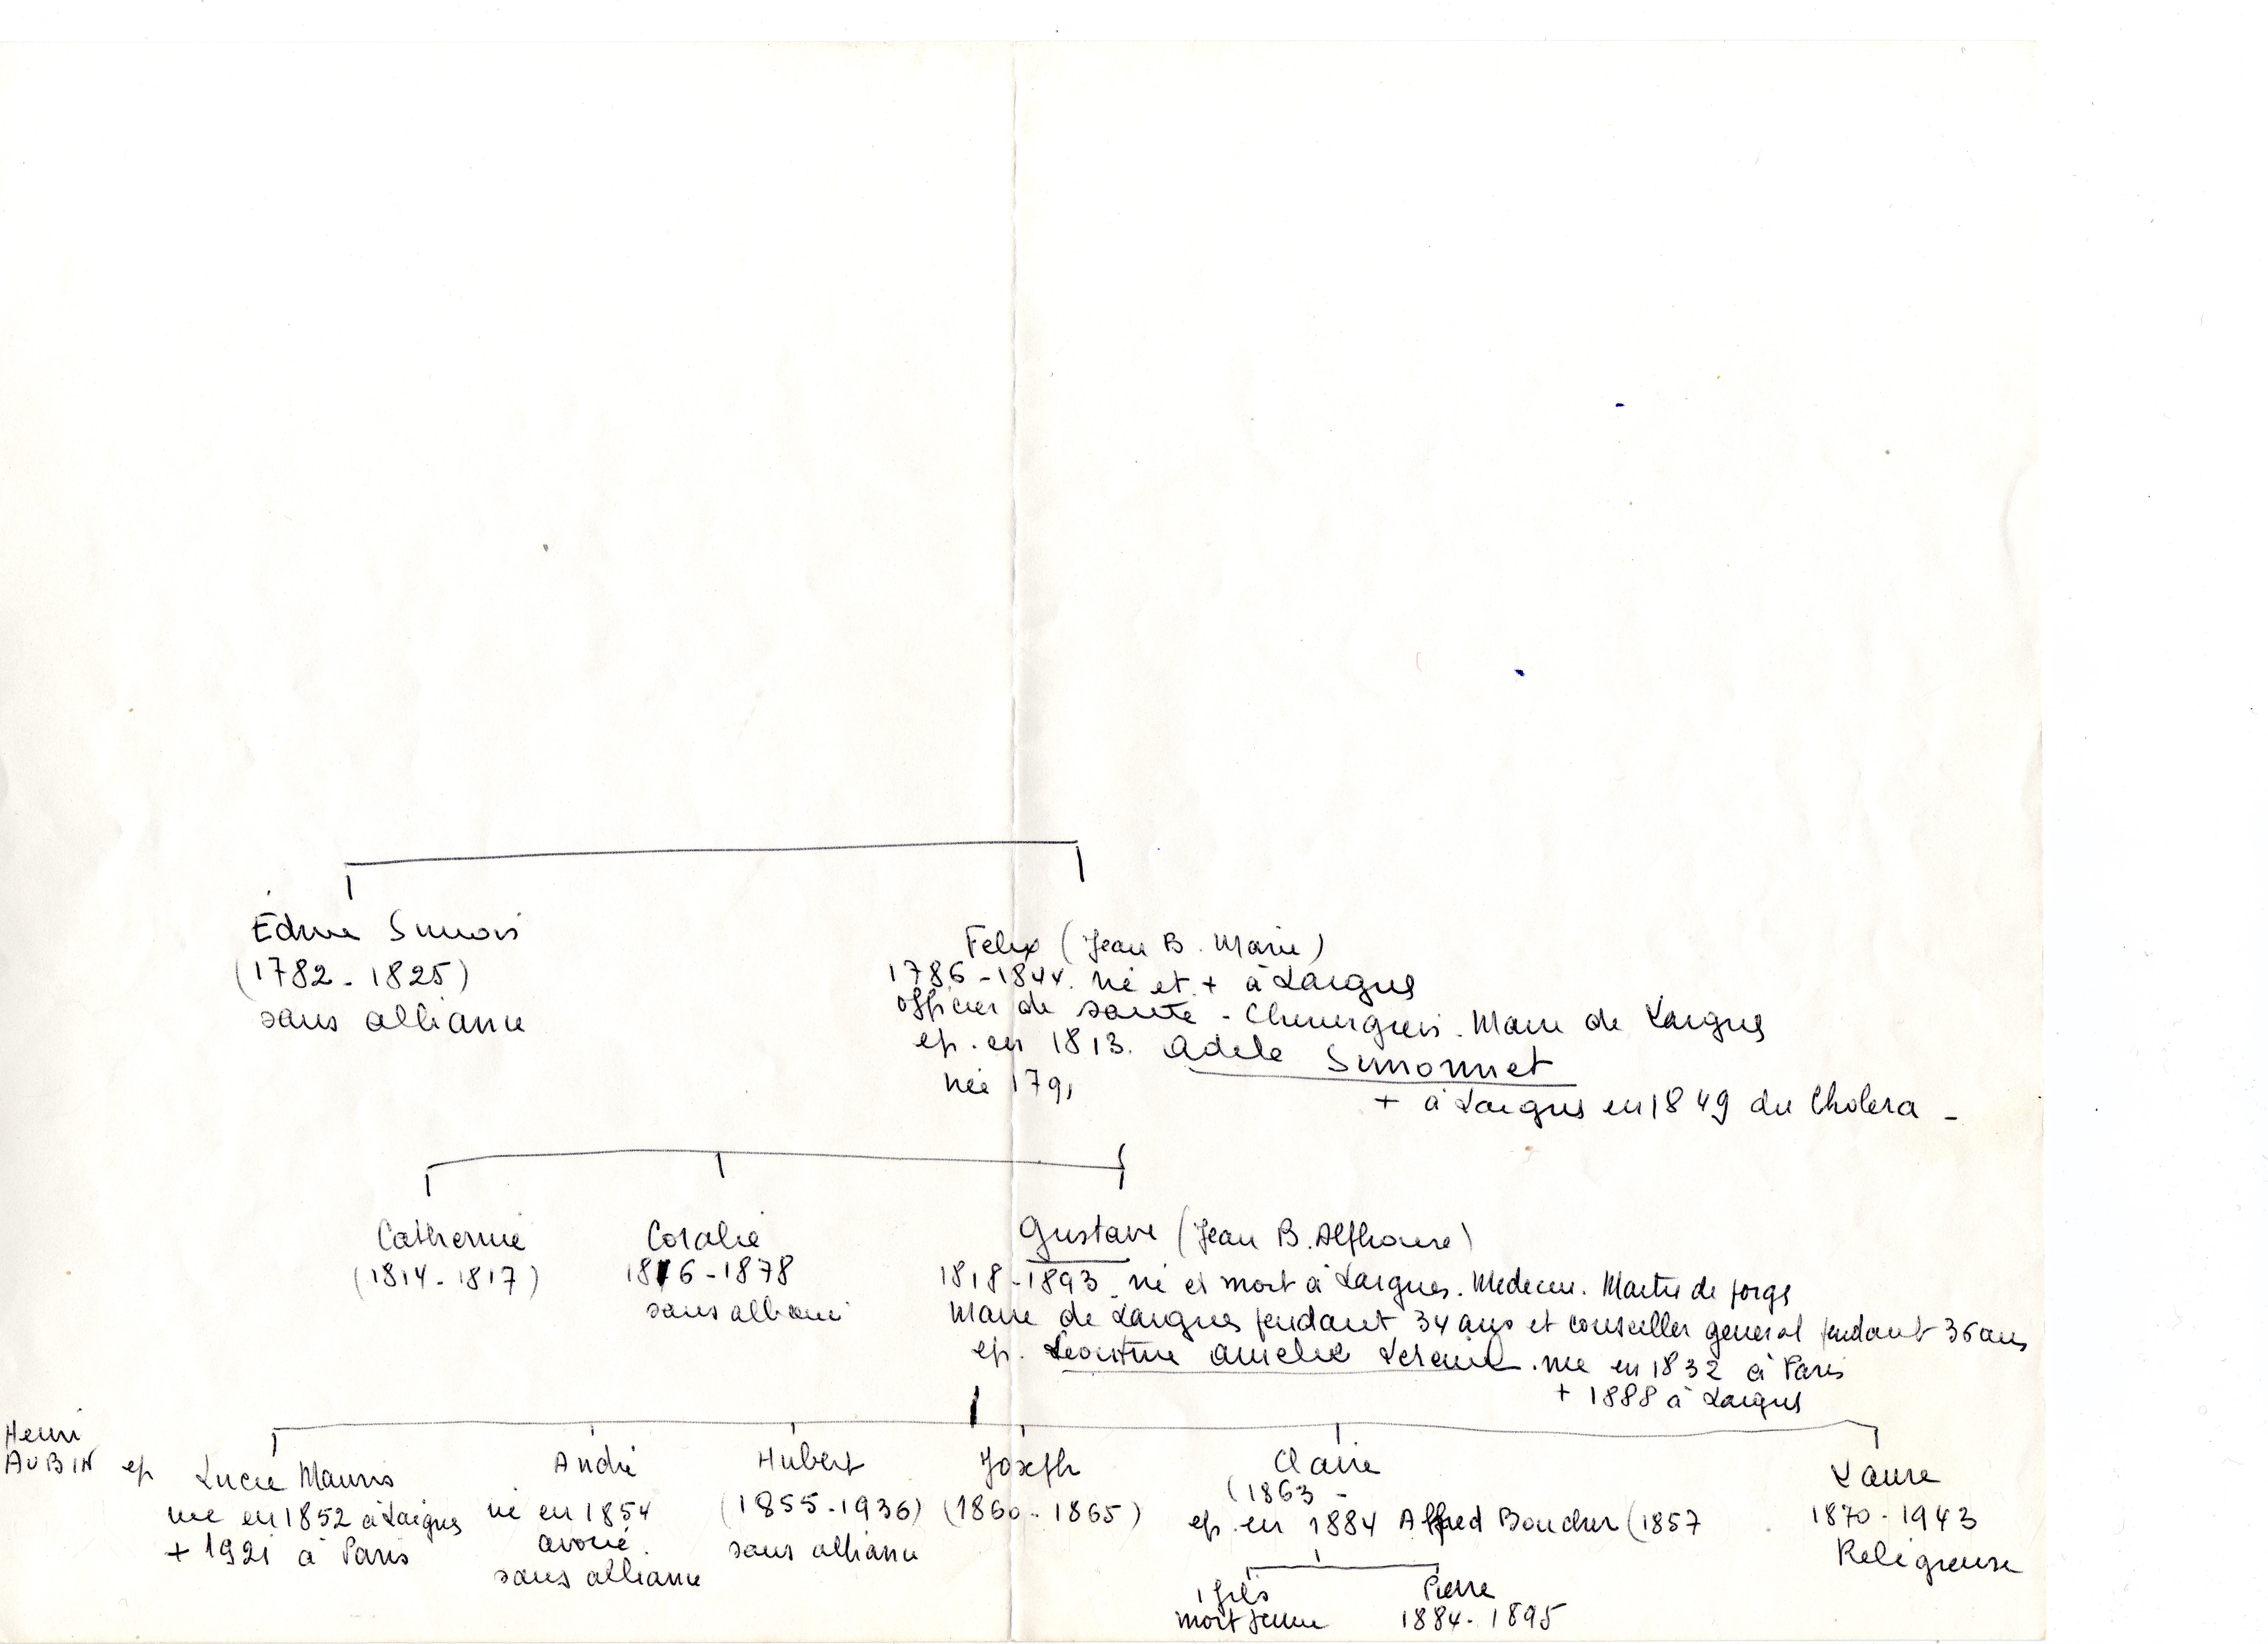 Edme Simon
(1782 - 1825)
sans alliance
Felix (Jean B. Marie)
1786 - 1844. né et + à Laignes
officier de santé - Chirurgien. Maire de Laignes
ep. en 1813. Adele Simonnet
née 1791
+ à Laignes en 1849 du Cholera -
Catherine
(1814 - 1817)
Coralie
1816 - 1878
sans alliance
Gustave (Jean B. Alphonse)
1818 - 1893. né et mort à Laignes. Medecin. Maitre de forges
Maire de Laignes pendant 34 ans et conseiller general pendant 36 ans
ep. Léontine Amelie . née en 1832 à Paris
+ 1888 à Laignes
Henri
AUBIN ep
Lucie Mauris
née en 1852 à Laignes
+ 1921 à Paris
André
né en 1854
avoué.
sans alliance
Hubert
(1855 - 1936)
sans alliance
Joseph
(1860 - 1865)
Claire
(1863 -
ep. en 1884 Alfred Boucher (1857
1 fils
mort jeune
Pierre
1884 - 1895
Laure
1870 - 1943
Religieuse